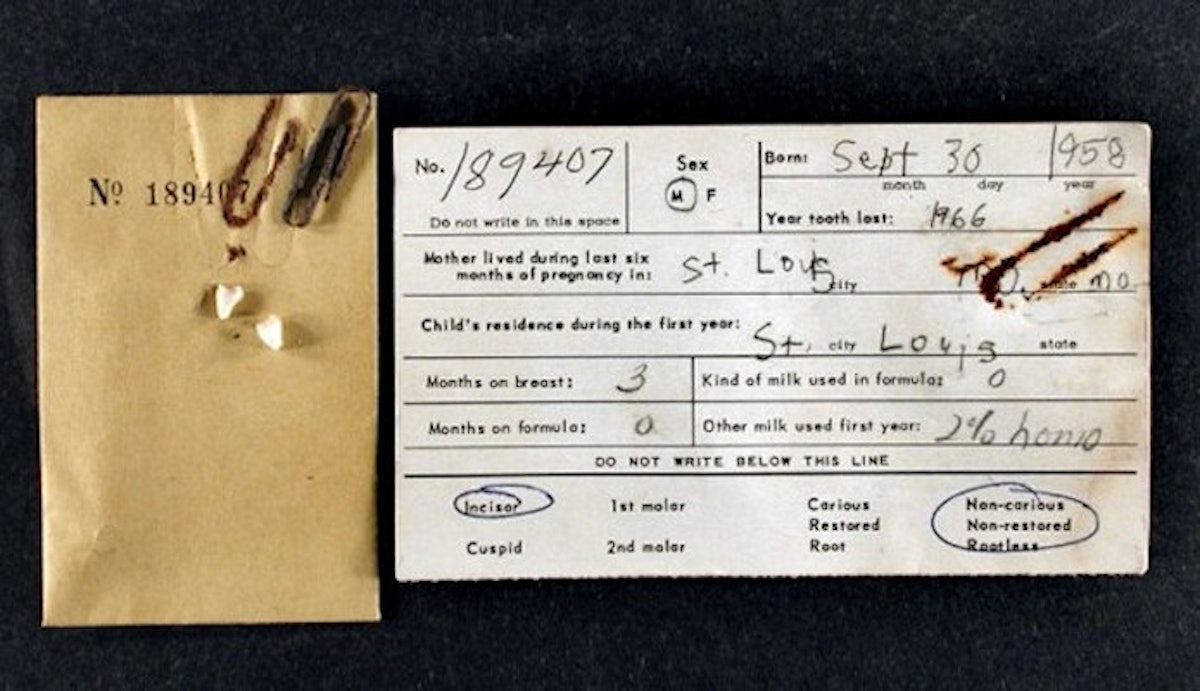 Nº 189407
No. 189407
Do not write in this space
Sex
M F
Born: Sept 30 1958
month day year
Year tooth lost: 1966
Mother lived during last six
months of pregnancy in: St. Louis city Mo. state Mo.
Child's residence during the first year: St. Louis city state
Months on breast: 3
Kind of milk used in formula: 0
Months on formula: 0
Other milk used first year: 2% homo
DO NOT WRITE BELOW THIS LINE
Incisor 1st molar Carious Non-carious
Restored Non-restored
Cuspid 2nd molar Root Rootless